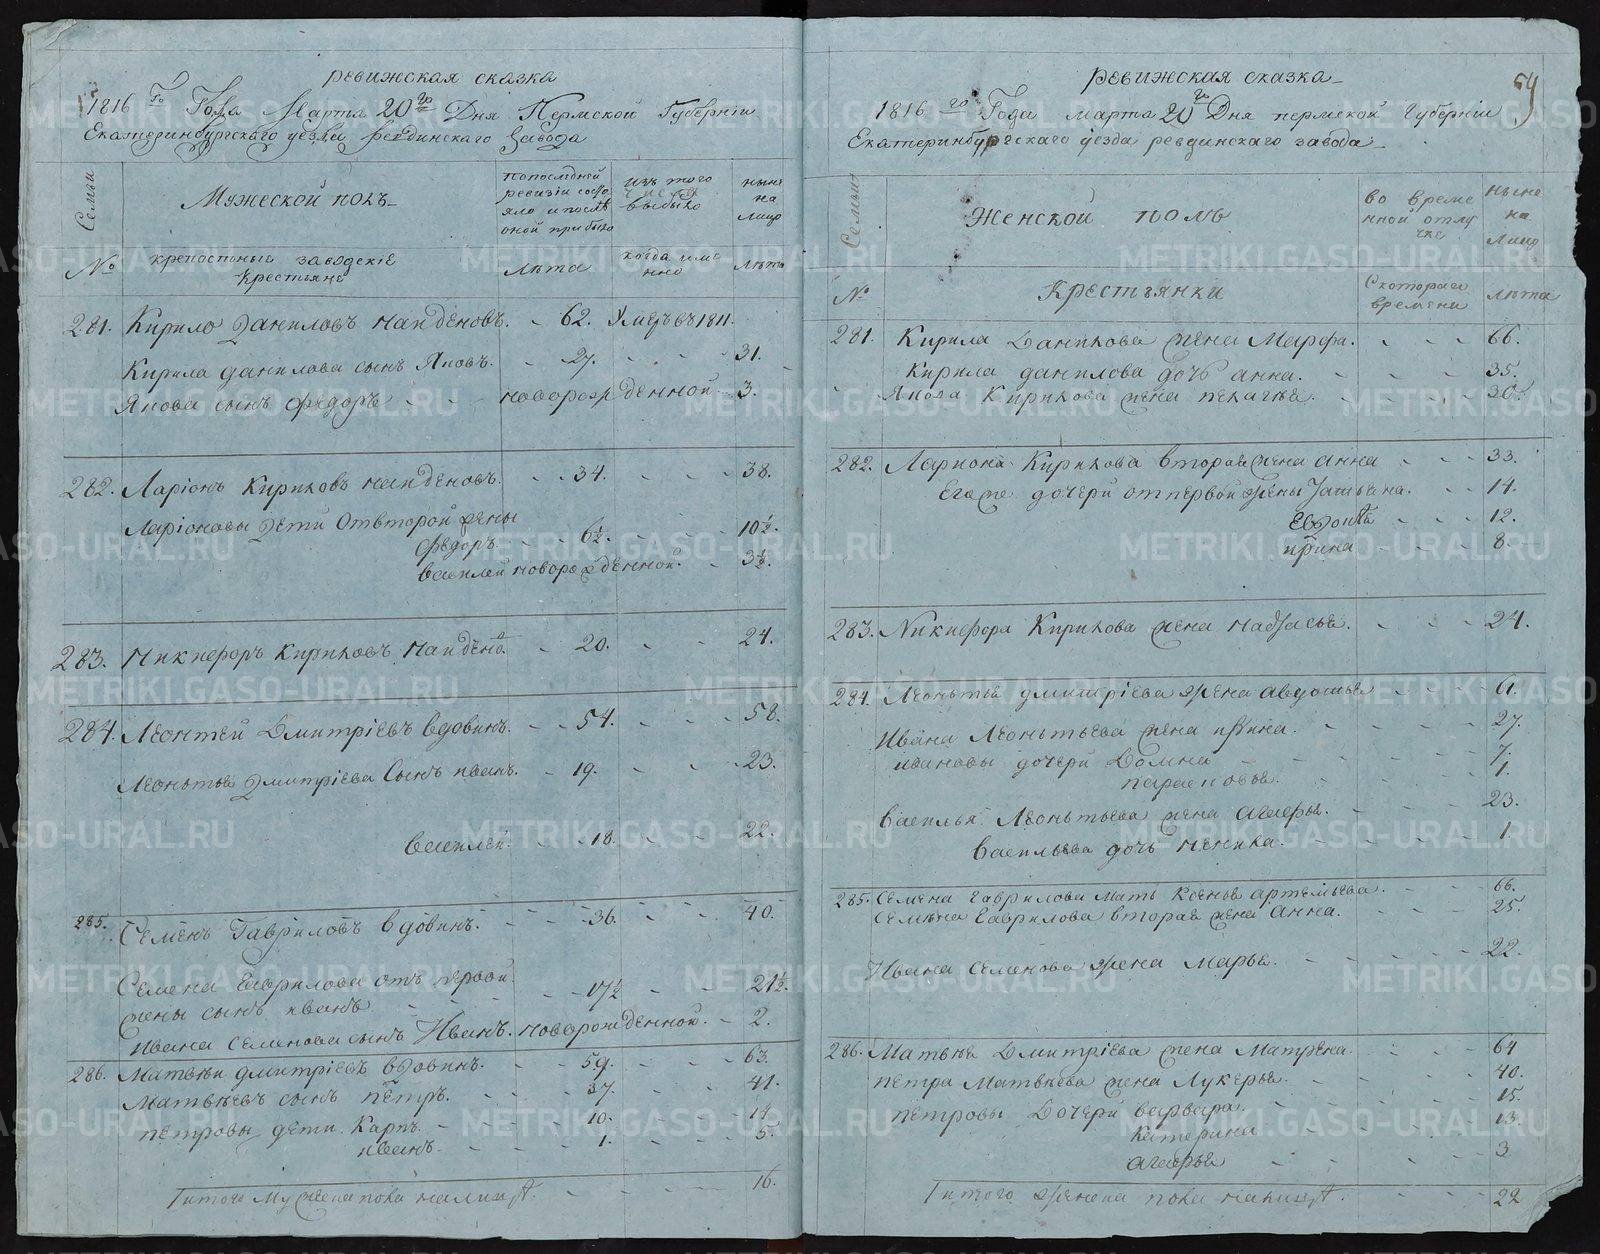 ревижская сказка
1816 го Года Марта 20 го Дня Пермской Губернии
Екатеринбургскаго уезда ревдинскаго завода
Семьи
Мужеской полъ
попоследней ревизии состояло ипосле оной прибыло
изъ того числа выбыло
ныне на лицо
№
крепостныи заводские крестьяне
лѣта
когда имянно
лѣта
281. Кирило Даниловъ Найденовъ. - 62. Умеръ въ 1811.
Кирила данилова сынъ Яковъ. - 27. - - - 31.
Якова сынъ федоръ - - новорожденной - 3.
282. Ларіонъ Кириловъ найденовъ. - 34. - - - 38.
Ларіоновы Дети Отвторой жены
федоръ. - - 6½. - - - 10½.
василей новорожденной. - 3½.
283. Никифоръ Кириловъ. Найдено. - 20. - - 24.
284. Леонтей Дмитріевъ вдовинъ. - - 54. - - 58.
Леонтья Дмитріева Сынъ иванъ. - 19. - - 23.
василей. - - 18. - - 22.
285. Семенъ Гавриловъ вдовинъ. - - 36. - - 40.
Семена Гаврилова отъ первой
жены сынъ иванъ - - - 17½ - - 21½.
Ивана Семенова сынъ Иванъ. новорожденной. - 2.
286. Матвеи дмитріевъ вдовинъ. - - 59. - - 63.
Матвѣевъ сынъ петръ. - - 37. - - 41.
петровы дети Карпъ. - - 10. - - 14
иванъ. - - 1. - - 5.
Iитого мужена пола налицо. - - - 16.
ревижская сказка
59
1816 го Года марта 20 го Дня пермской Губернии
Екатеринбургскаго уезда ревдинскаго завода
Семьи
Женской полъ
во временной отлучке
ныне на лицо
№
Крестьянки
Скотораго времени
лѣта
281. Кирила Данилова жена Марфа. - - - 66.
Кирила данилова дочь анна. - - - 35.
Якова Кирилова жена пелагья. - - - 30.
282. Лариона Кирилова вторая жена анна - - - 33.
Егоже дочери отпервой жены Татьяна. - - 14.
- - - 12.
ирина - - - 8.
283. Никифора Кирилова жена настасья. - - - 24.
284. Леонтья дмитріева жена авдотья - - - 61.
Ивана Леонтьева жена ирина. - - - 27.
ивановы дочери Домна - - - 7.
парасковья. - - - 1.
Василья Леонтьева жена агафья. - - - 23.
Васильева дочь ненила. - - - 1.
285. Семена Гаврилова мать Ксенья артемьева. - - - 66.
Семена Гаврилова вторая жена Анна. - - - 25.
Ивана Семенова жена Марья. - - - 22.
286. Матвея Дмитріева жена Матрена. - - - 64
петра Матвѣева жена Лукерья. - - - 40.
петровы Дочери варвара. - - - 15.
Катерина - - - 13.
агафья - - - 3
Iитого женска пола налицо. - - - 22
METRIKI.GASO-URAL.RU